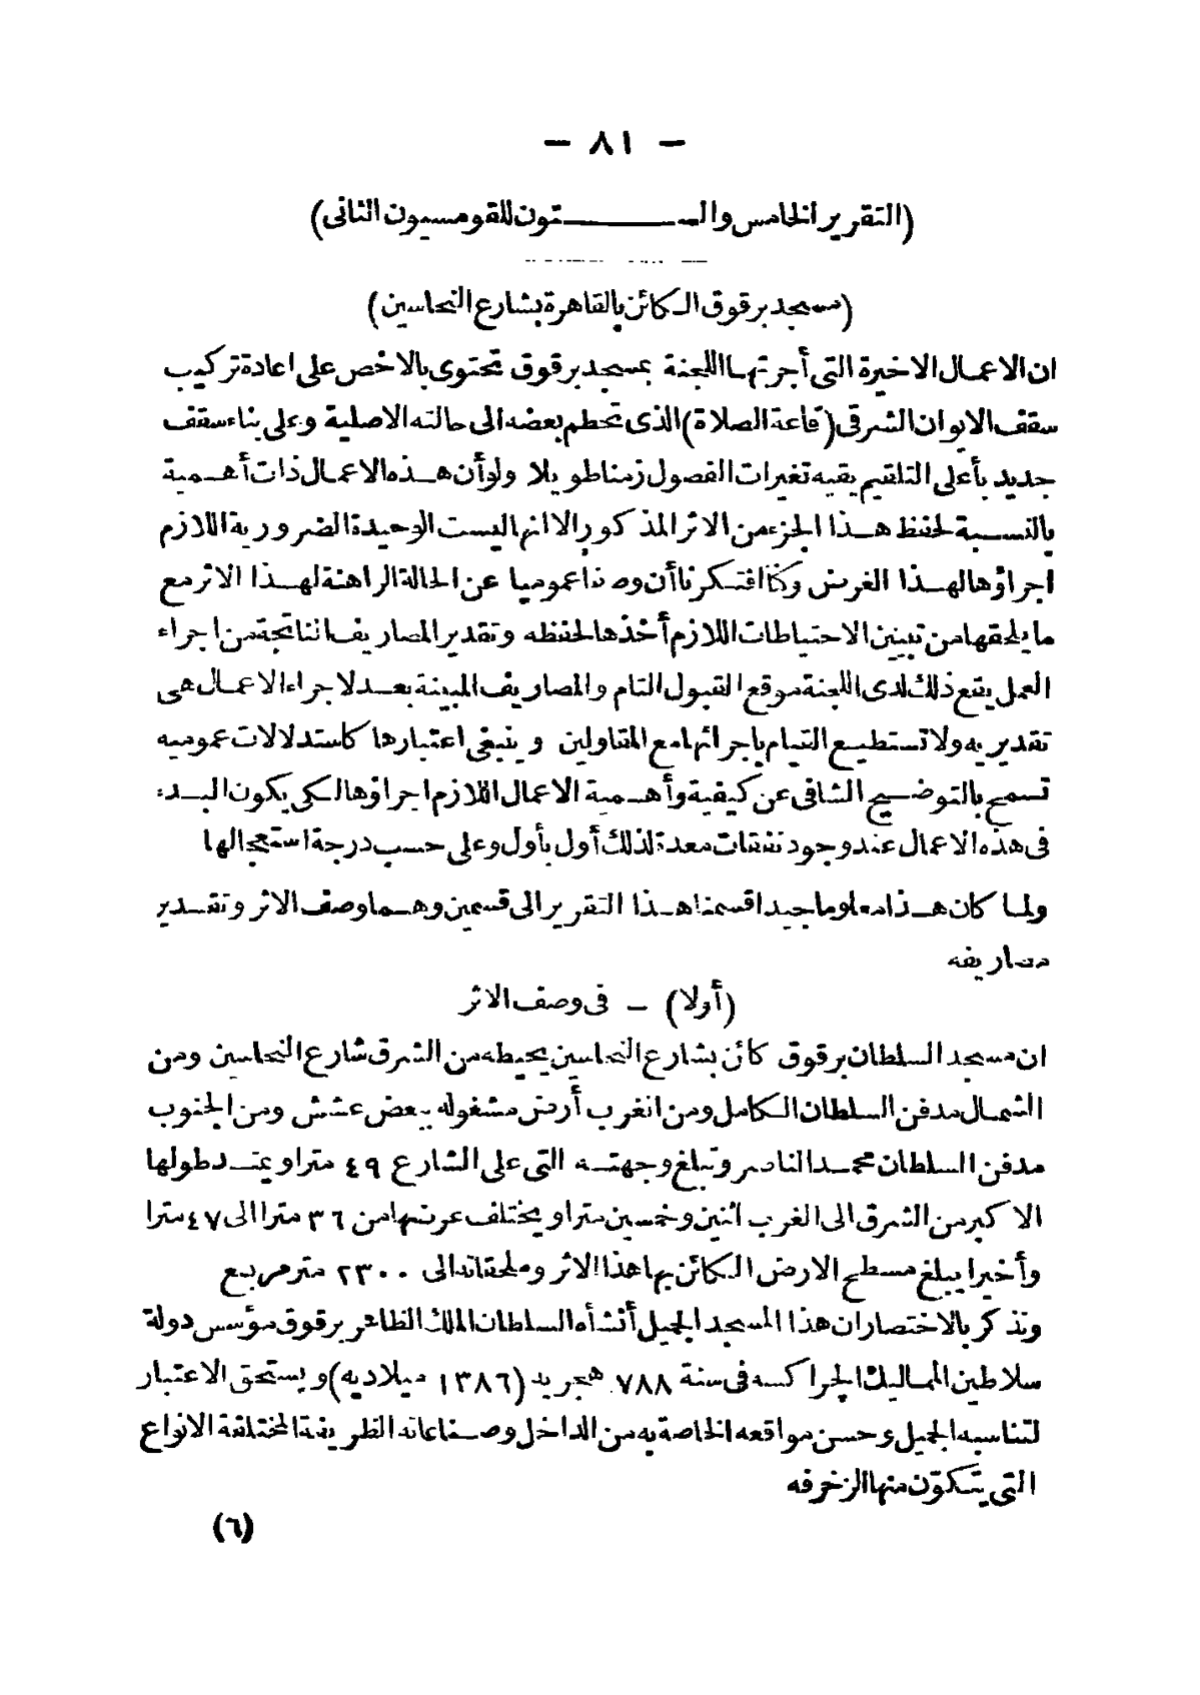 — ٨١ —
(التقرير الخامس والستون للقومسيون الثانى)
(مسجد برقوق الكائن بالقاهرة بشارع النحاسين)
ان الاعمال الاخيرة التى أجرتها اللجنة بمسجد برقوق تحتوى بالاخص على اعادة تركيب
سقف الايوان الشرقى (قاعة الصلاة) الذى تحطم بعضه الى حالته الاصلية وعلى بناء سقف
جديد بأعلى التلقيم يقيه تغيرات الفصول زمنا طويلا ولو أن هذه الاعمال ذات أهمية
بالنسبة لحفظ هذا الجزء من الاثر المذكور الا انها ليست الوحيدة الضرورية اللازم
اجراؤها لهذا الغرض وكنا افتكرنا أن وصفا عموميا عن الحالة الراهنة لهذا الاثر مع
ما يلحقها من تبيين الاحتياطات اللازم أخذها لحفظه وتقدير المصاريف الناتجة من اجراء
العمل يقع ذلك لدى اللجنة موقع القبول التام والمصاريف المبينة بعد لاجراء الاعمال هى
تقديريه ولا تستطيع القيام باجرائها مع المقاولين وينبغى اعتبارها كاستدلالات عموميه
تسمح بالتوضيح الشافى عن كيفية وأهمية الاعمال اللازم اجراؤها لكى يكون البدء
فى هذه الاعمال عند وجود نفقات معدة لذلك أول بأول وعلى حسب درجة استعجالها
ولما كان هذا معلوما جيدا قسمنا هذا التقرير الى قسمين وهما وصف الاثر وتقدير
مصاريفه
(أولا) — فى وصف الاثر
ان مسجد السلطان برقوق كائن بشارع النحاسين يحيطه من الشرق شارع النحاسين ومن
الشمال مدفن السلطان الكامل ومن الغرب أرض مشغوله ببعض عشش ومن الجنوب
مدفن السلطان محمد الناصر وتبلغ وجهته التى على الشارع ٤٩ مترا ويمتد طولها
الاكبر من الشرق الى الغرب اثنين وخمسين مترا ويختلف عرضها من ٣٦ مترا الى ٤٧ مترا
وأخيرا يبلغ مسطح الارض الكائن بها هذا الاثر وملحقاته الى ٢٣٠٠ متر مربع
ونذكر بالاختصار ان هذا المسجد الجميل أنشأه السلطان الملك الظاهر برقوق مؤسس دولة
سلاطين المماليك الجراكسه فى سنة ٧٨٨ هجريه (١٣٨٦ ميلاديه) ويستحق الاعتبار
لتناسبه الجميل وحسن مواقعه الخاصة به من الداخل وصناعاته الظريفة المختلفة الانواع
التى يتكوّن منها الزخرفه
(٦)